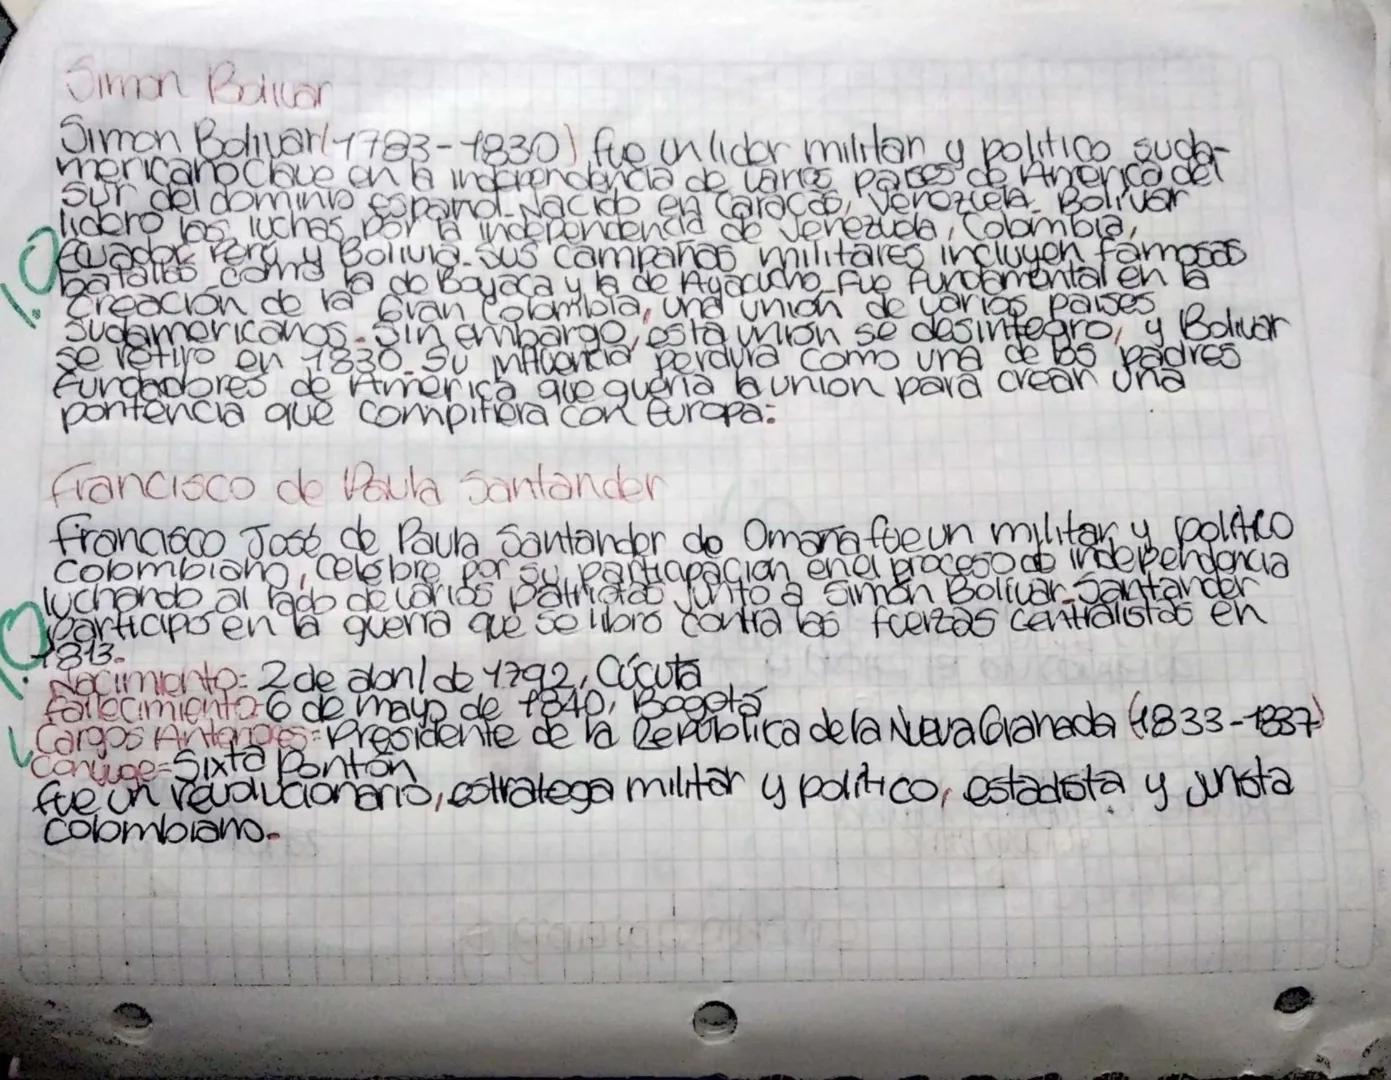 Simon Bolivar
Simon Bolivar (1783-1830) fue un lider militar y politico suda-
mericano clave en la independencia de varios paises de America del
sur del dominio español. Nacido en Caracas, Venezuela. Bolivar
lidero las luchas por la independencia de Venezuela, Colombia,
Ecuador, Perú y Bolivia. Sus campañas militares incluyen famosas
batallas como la de Boyaca y la de Ayacucho. Fue fundamental en la
creación de la Gran Colombia, una unión de varios paises
sudamericanos. Sin embargo, esta unión se desintegro, y Bolivar
se retiro en 1830. Su influencia perdura como una de los padres
fundadores de America que queria la union para crear una
pontencia que compitiera con Europa.
1.0
Francisco de Paula Santander
Francisco José de Paula Santander de Omaña fue un militar y politico
colombiano, celebre por su participación en el proceso de independencia
luchando al lado de varios patriotas junto a Simón Bolivar. Santander
participo en la guerra que se libro contra las fuerzas centralistas en
1813.
1.0
Nacimiento: 2 de abril de 1792, Cúcuta
Fallecimiento: 6 de mayo de 1840, Bogotá
Cargos Anteriores: Presidente de la República de la Nueva Granada (1833-1837)
Conyuge: Sixta Pontón
fue un revolucionario, estratega militar y politico, estadista y jurista
colombiano.